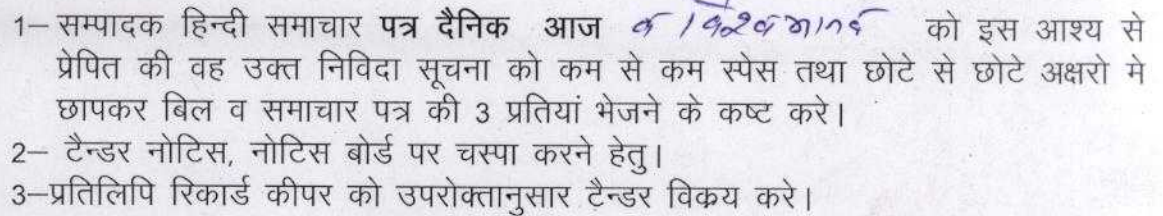 1– सम्पादक हिन्दी समाचार पत्र दैनिक आज व विश्वमानव को इस आश्य से
प्रेपित की वह उक्त निविदा सूचना को कम से कम स्पेस तथा छोटे से छोटे अक्षरो मे
छापकर बिल व समाचार पत्र की 3 प्रतियां भेजने के कष्ट करे।
2– टैन्डर नोटिस, नोटिस बोर्ड पर चस्पा करने हेतु।
3–प्रतिलिपि रिकार्ड कीपर को उपरोक्तानुसार टैन्डर विक्रय करे।